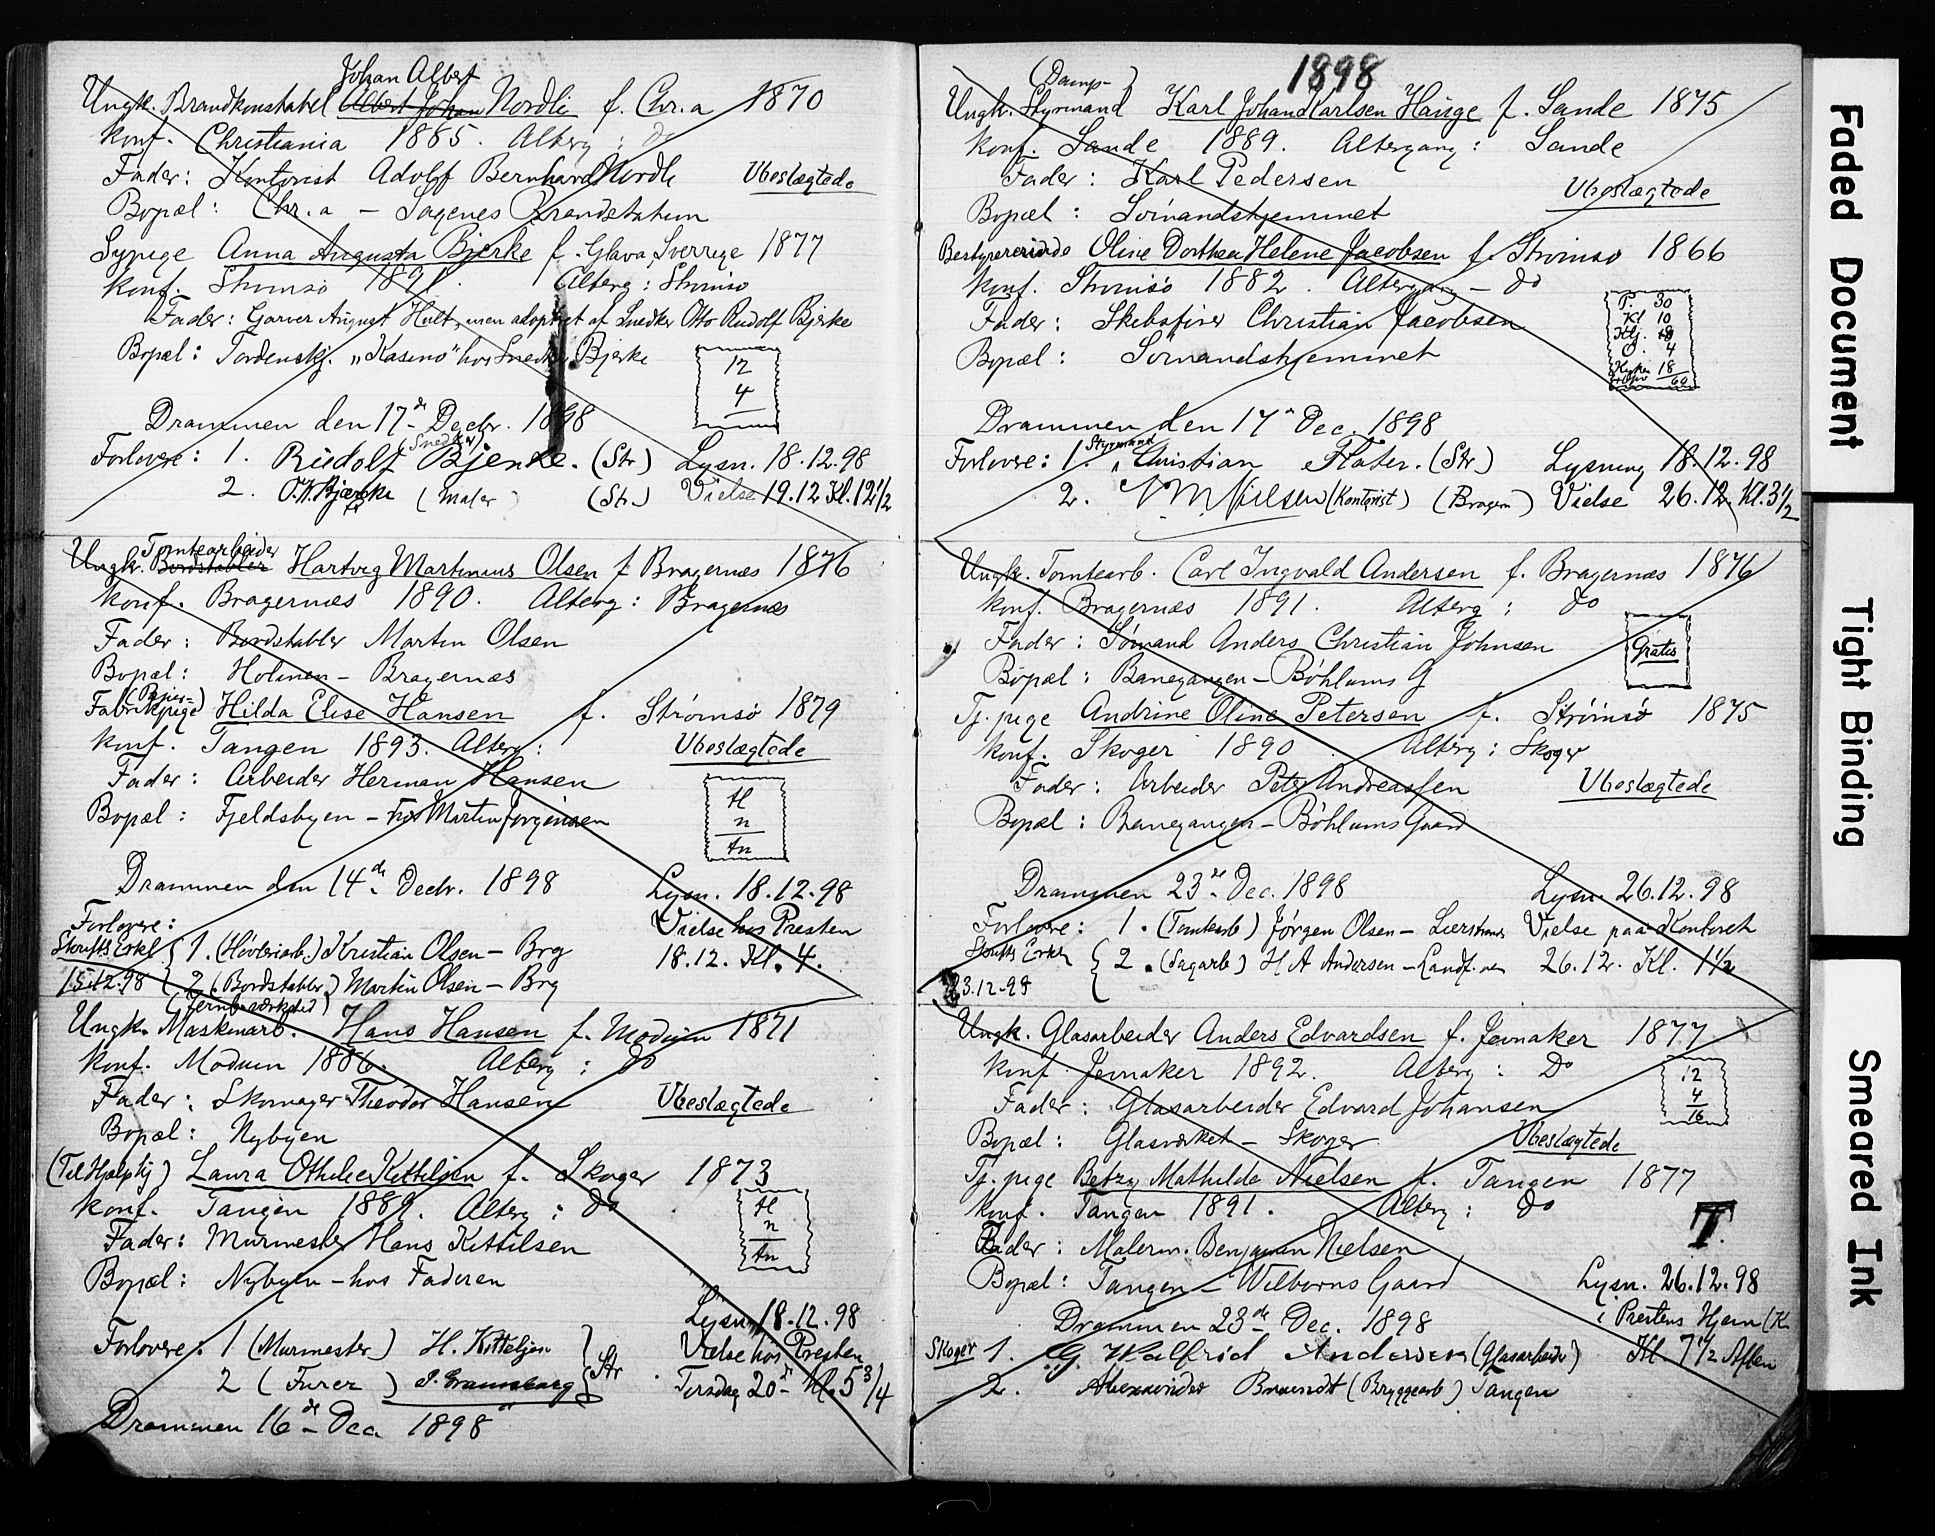 Johan Albert
Ungk. Brandkonstabel Albert Johan Nordli f. Chr.a 1870
Konf. Christiania 1885. Alterg: do
Fader: Kontorist Adolf Bernhard Nordli Ubeslægtede
Bopæl: Chr.a – Sagenes Brandstation
Sypige Anna Augusta Bjerke f. Glava, Sverrige 1877
Konf. Strømsø 1891. Alterg: Strømsø
Fader: Garver August Hult, men adoptret af Snedker Otto Rudolf Bjerke
Bopæl: Tordenskj. „Kasino" hos Snedker Bjerke
12
4
Drammen den 17de Decbr. 1898
(Snedker)
Forlovere: 1. Rudolf Bjerke. (Str) Lysn. 18.12.98
2. Bjerke (Maler) (Str.) Vielse 19.12 Kl. 12 1/2
Tomtearbeider
Ungk. Bordstabler Hartvig Martinius Olsen f Bragernæs 1876
Konf. Bragernæs 1890. Alterg: Bragernæs
Fader: Bordstabler Martin Olsen
Bopæl: Holmen – Bragernæs
(Papir-)
Fabrikpige Hilda Elise Hansen f. Strømsø 1879
Konf. Tangen 1893. Alterg: Ubeslægtede
Fader: Arbeider Herman Hansen
Bopæl: Fjeldsbyen – hos Martin Jørgensen
tl
n
tn
Drammen den 14de Decbr. 1898 Lysn. 18.12.98
Forlovere: Vielse hos Presten
Skrufts Erkl 1. (Høvleriarb.) Kristian Olsen – Brg 18.12. Kl. 4.
15.12.98 2. (Bordstabler) Martin Olsen – Brg
Ungk. Maskinarb. Hans Hansen f. Modum 1871
Konf. Modum 1886. Alterg: do
Fader: Skomager Theodor Hansen Ubeslægtede
Bopæl: Nybyen
(Til Hjælp tj) Laura Othilie Kittilsen f. Skoger 1873
Konf. Tangen 1889. Alterg: do
Fader: Murmester Hans Kittilsen
Bopæl: Nybyen – hos Faderen
tl
n
tn
Lysn 18.12.98
Forlovere: 1 (Murmester) H. Kittelsen Vielse hos Presten
2 (Furer) Str. Tirsdag 20de Kl. 5 3/4
Drammen 16de Dec. 1898
1898
(Damp-)
Ungk. Styrmand Karl Johan Karlsen Hauge f. Sande 1875
Konf. Sande 1889. Altergang: Sande
Fader: Karl Pedersen Ubeslægtede
Bopæl: Sømandshjemmet
Bestyrerinde Oline Dorthea Helene Jacobsen f. Strømsø 1866
Konf. Strømsø 1882. Altergang – do
Fader: Skibsfører Christian Jacobsen
Bopæl: Sømandshjemmet
P. 30
Kl 10
Klj. 18
O. 4
18
60
Drammen den 17de Dec. 1898
Styrmand
Forlovere: 1. Christian Flater. (Str) Lysning 18.12.98
2. N M Nielsen (Kontorist) (Bragern) Vielse 26.12. Kl. 3 1/2
Ungk. Tomtearb. Carl Ingvald Andersen f. Bragernæs 1876
Konf. Bragernæs 1891. Alterg: do
Fader: Sømand Anders Christian Johnsen
Gratis
Bopæl: Banegangen – Böhlums G
Tj. pige Andrine Oline Petersen f. Strømsø 1875
Konf. Skoger 1890 Alterg: Skoger
Fader: Arbeider Peter Andreassen Ubeslægtede
Bopæl: Banegangen – Böhlums Gaard
Drammen 23de Dec. 1898 Lysn. 26.12.98
Forlovere: 1. (Tomtearb) Jørgen Olsen – Lierstrand Vielse paa Kontoret
Skrufts Erkl 2. (Sagarb) H A Andersen – 26.12. Kl. 1 1/2
23.12.98
Ungk. Glasarbeider Anders Edvardsen f. Jevnaker 1877
Konf. Jevnaker 1892. Alterg: Do
Fader: Glasarbeider Edvard Johansen
12
4
16
Bopæl: Glasværket – Skoger Ubeslægtede
Tj. pige Betzy Mathilde Nielsen f. Tangen 1877
Konf. Tangen 1891. Alterg: do
T.
Fader: Malerm. Benjamin Nielsen
Bopæl: Tangen – Wilborns Gaard Lysn. 26.12.98
Drammen 23de Dec. 1898 i Prestens Hjem
Skoger 1. G. Walfrid Andersen (Glasarbeider) Kl. 7 1/2 Aften
2. Alexander Braendt (Bryggearb) Tangen
Faded Document
Tight Binding
Smeared Ink